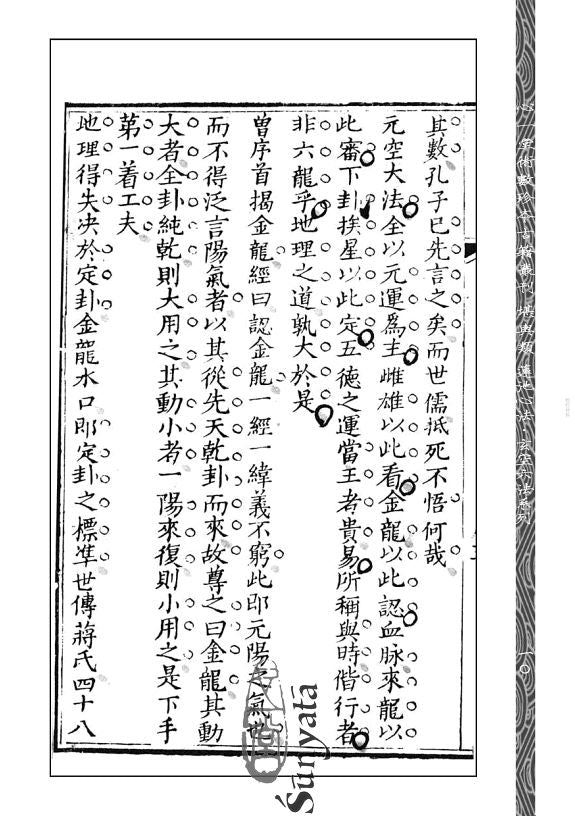 其數孔子已先言之矣而世儒抵死不悟何哉
元空大法全以元運為主雌雄以此看金龍以此認血脉來龍以
此審下卦挨星以此定五德之運當王者貴易所稱與時偕行者
非六龍乎地理之道孰大於是
曾序首揭金龍經曰認金龍一經一緯義不窮此即元陽之氣也
而不得泛言陽氣者以其從先天乾卦而來故尊之曰金龍其動
大者全卦純乾則大用之其動小者一陽來復則小用之是下手
第一着工夫
地理得失決於定卦金龍水口即定卦之標準世傳蔣氏四十八
心一堂術數珍本古籍叢刊 堪輿類 蓮池心法 玄空六法系列
一〇
Śūnyatā